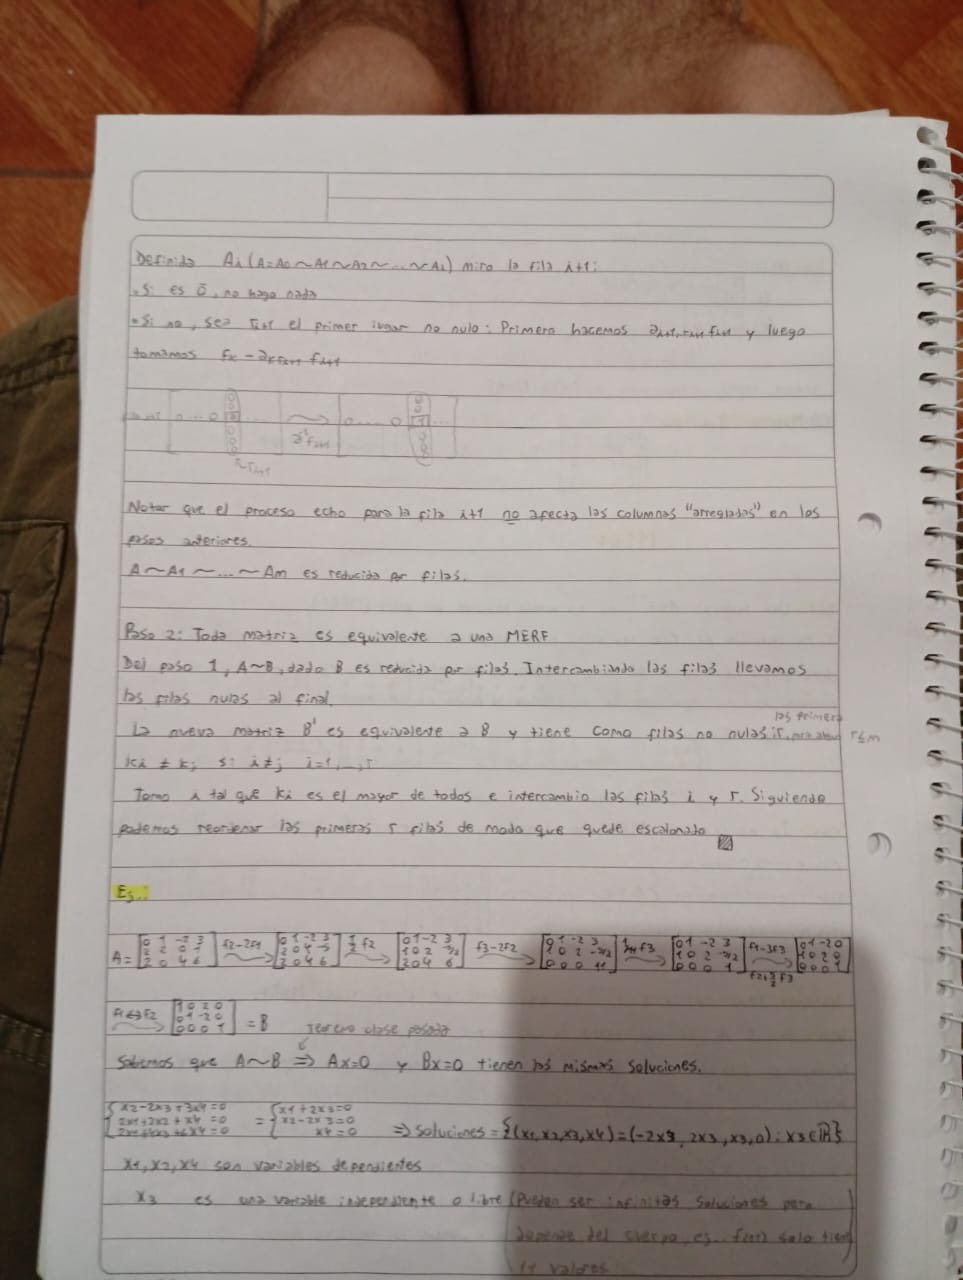 Definida Ai (A=A0~A1~A2~...~Ai) miro la fila i+1:
• Si es 0, no hago nada
• Si no, sea ri+1 el primer lugar no nulo: Primero hacemos fi+1 y luego
tomamos
0...0
0...0
ri+1
Notar que el proceso echo para la fila i+1 no afecta las columnas "arregladas" en los
pasos anteriores.
A~A1~...~Am es reducida por filas.
Paso 2: Toda matriz es equivalente a una MERF
Del paso 1, A~B, dado B es reducida por filas. Intercambiando las filas llevamos
las filas nulas al final.
La nueva matriz B' es equivalente a B y tiene como filas no nulas las primera r≤m
ki ≠ kj si i≠j i=1,...,r
Tomo i tal que ki es el mayor de todos e intercambio las filas i y r. Siguiendo
podemos reordenar las primeras r filas de modo que quede escalonada
Ej.:
A= f2-2f1 1/2 f2 f3-2f2 1/11 f3 f1-3f3
f1↔f2 [1 0 2 0
0 1 -2 0
0 0 0 1] = B Teorema clase pasada
Sabemos que A~B ⇒ Ax=0 y Bx=0 tienen las mismas soluciones.
{x2-2x3+3x4=0 = {x1+2x3=0
2x1+2x2+x4=0 x2-2x3=0
2x1+4x3+6x4=0 x4=0 ⇒ soluciones={(x1,x2,x3,x4)=(-2x3,2x3,x3,0):x3∈ℝ}
x1,x2,x4 son variables dependientes
x3 es una variable independiente o libre (Pueden ser infinitas soluciones pero
depende del cuerpo, ej. solo tiene
11 valores